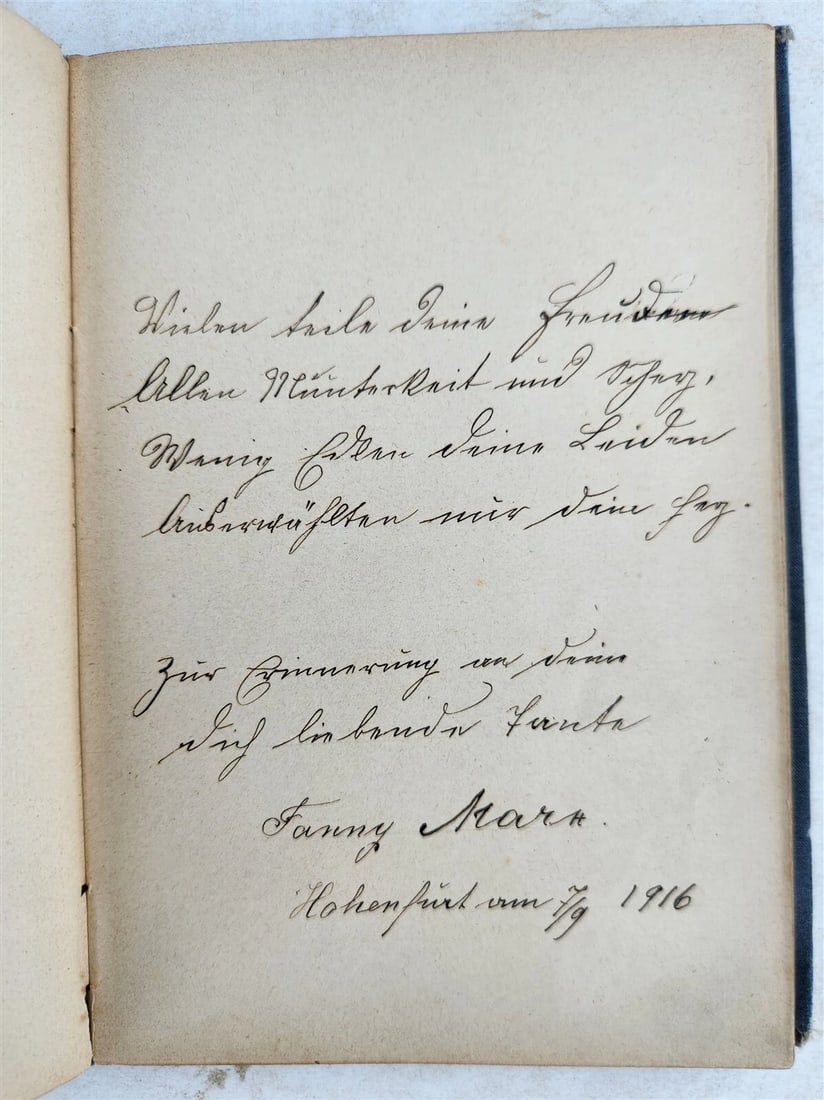 Vielen teile deine Freuden
Allen Munterkeit und Scherz,
Wenig Edlen deine Leiden
Auserwählten nur dein Herz.
Zur Erinnerung an deine
dich liebende Tante
Fanny Marx.
Hohenfurt am 7/9 1916